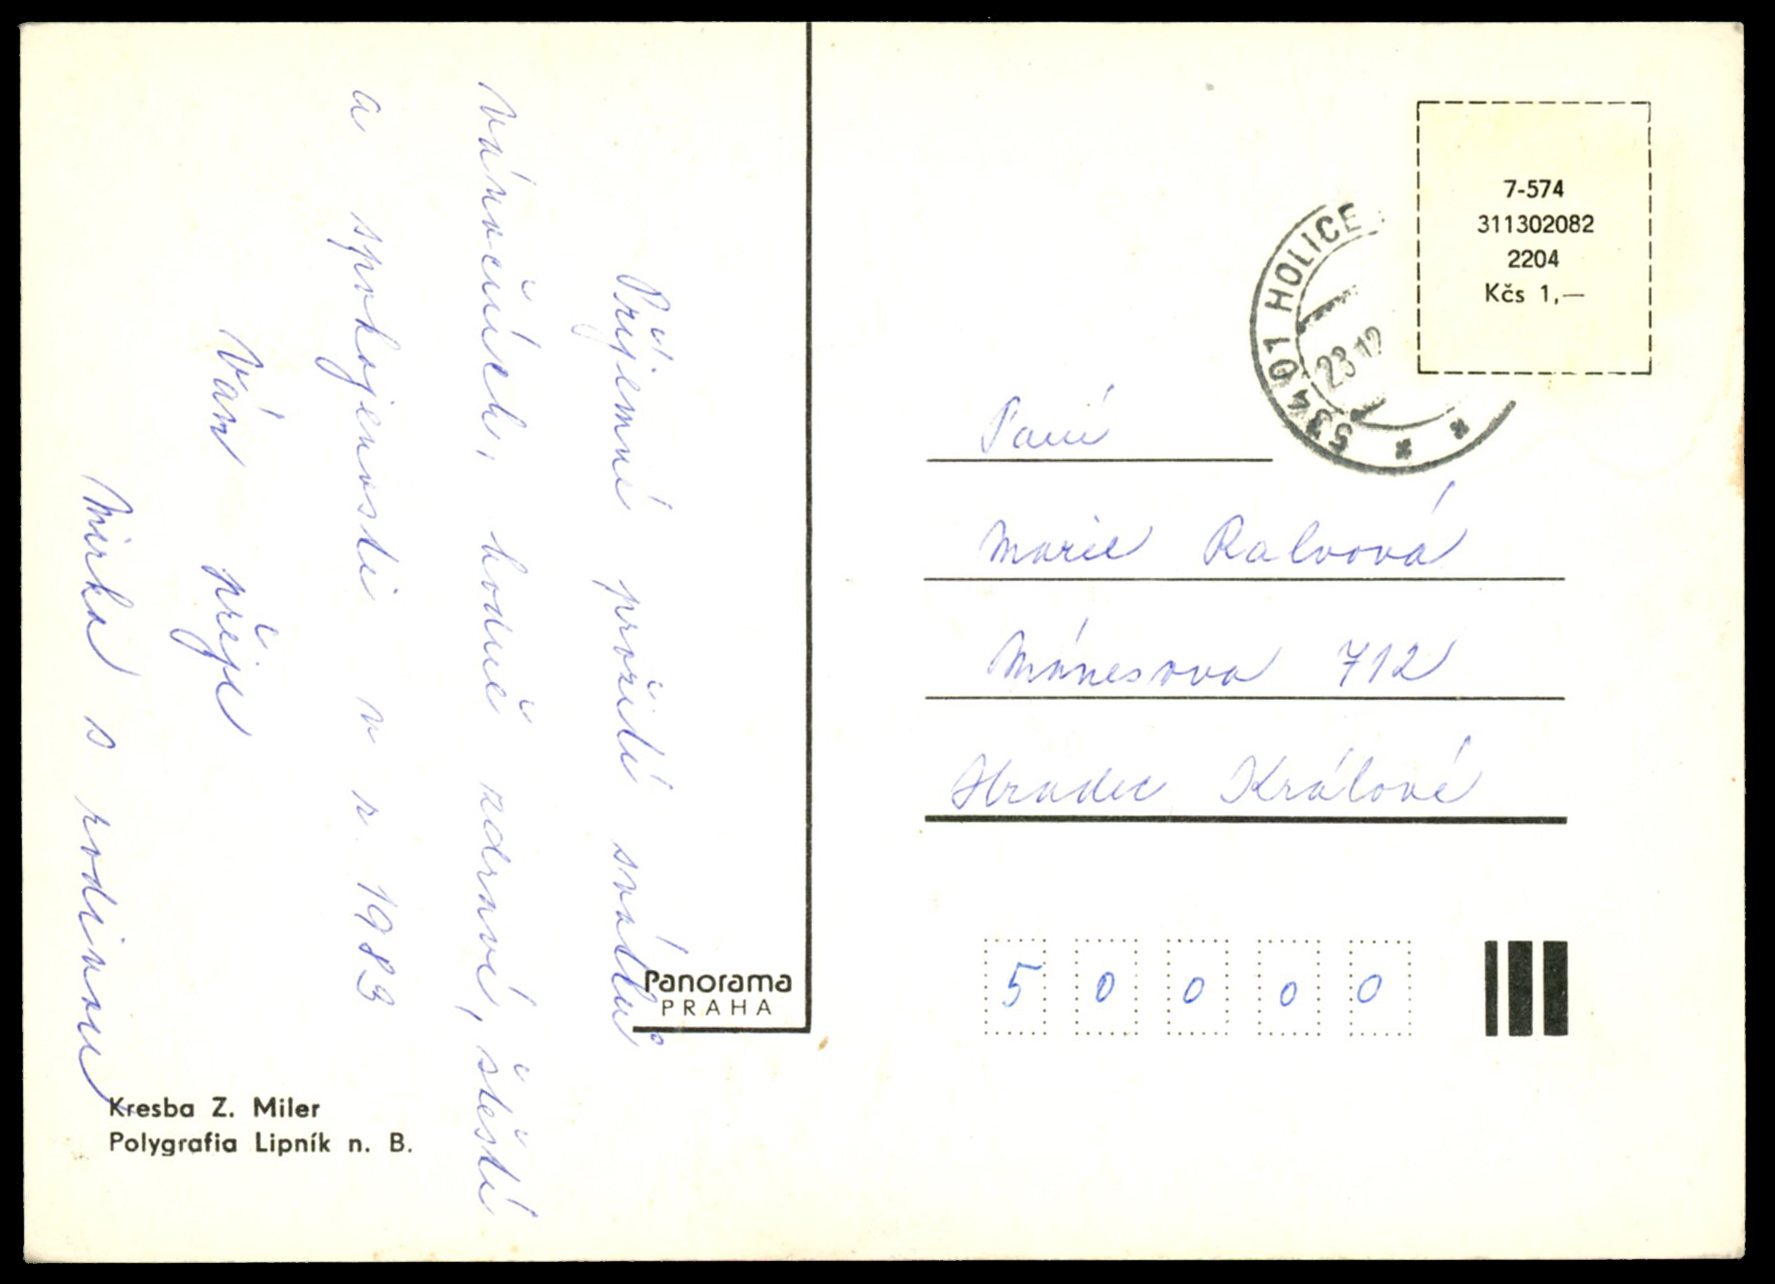 Příjemné prožití svátků
vánočních, hodně zdraví, štěstí
a spokojenosti v r. 1983
Vám přeje
Mirka s rodinou
Kresba Z. Miler
Polygrafia Lipník n. B.
Panorama
PRAHA
7-574
311302082
2204
Kčs 1,—
534 01 HOLICE
23 12
Paní
Marie Ralvová
Mánesova 712
Hradec Králové
50000